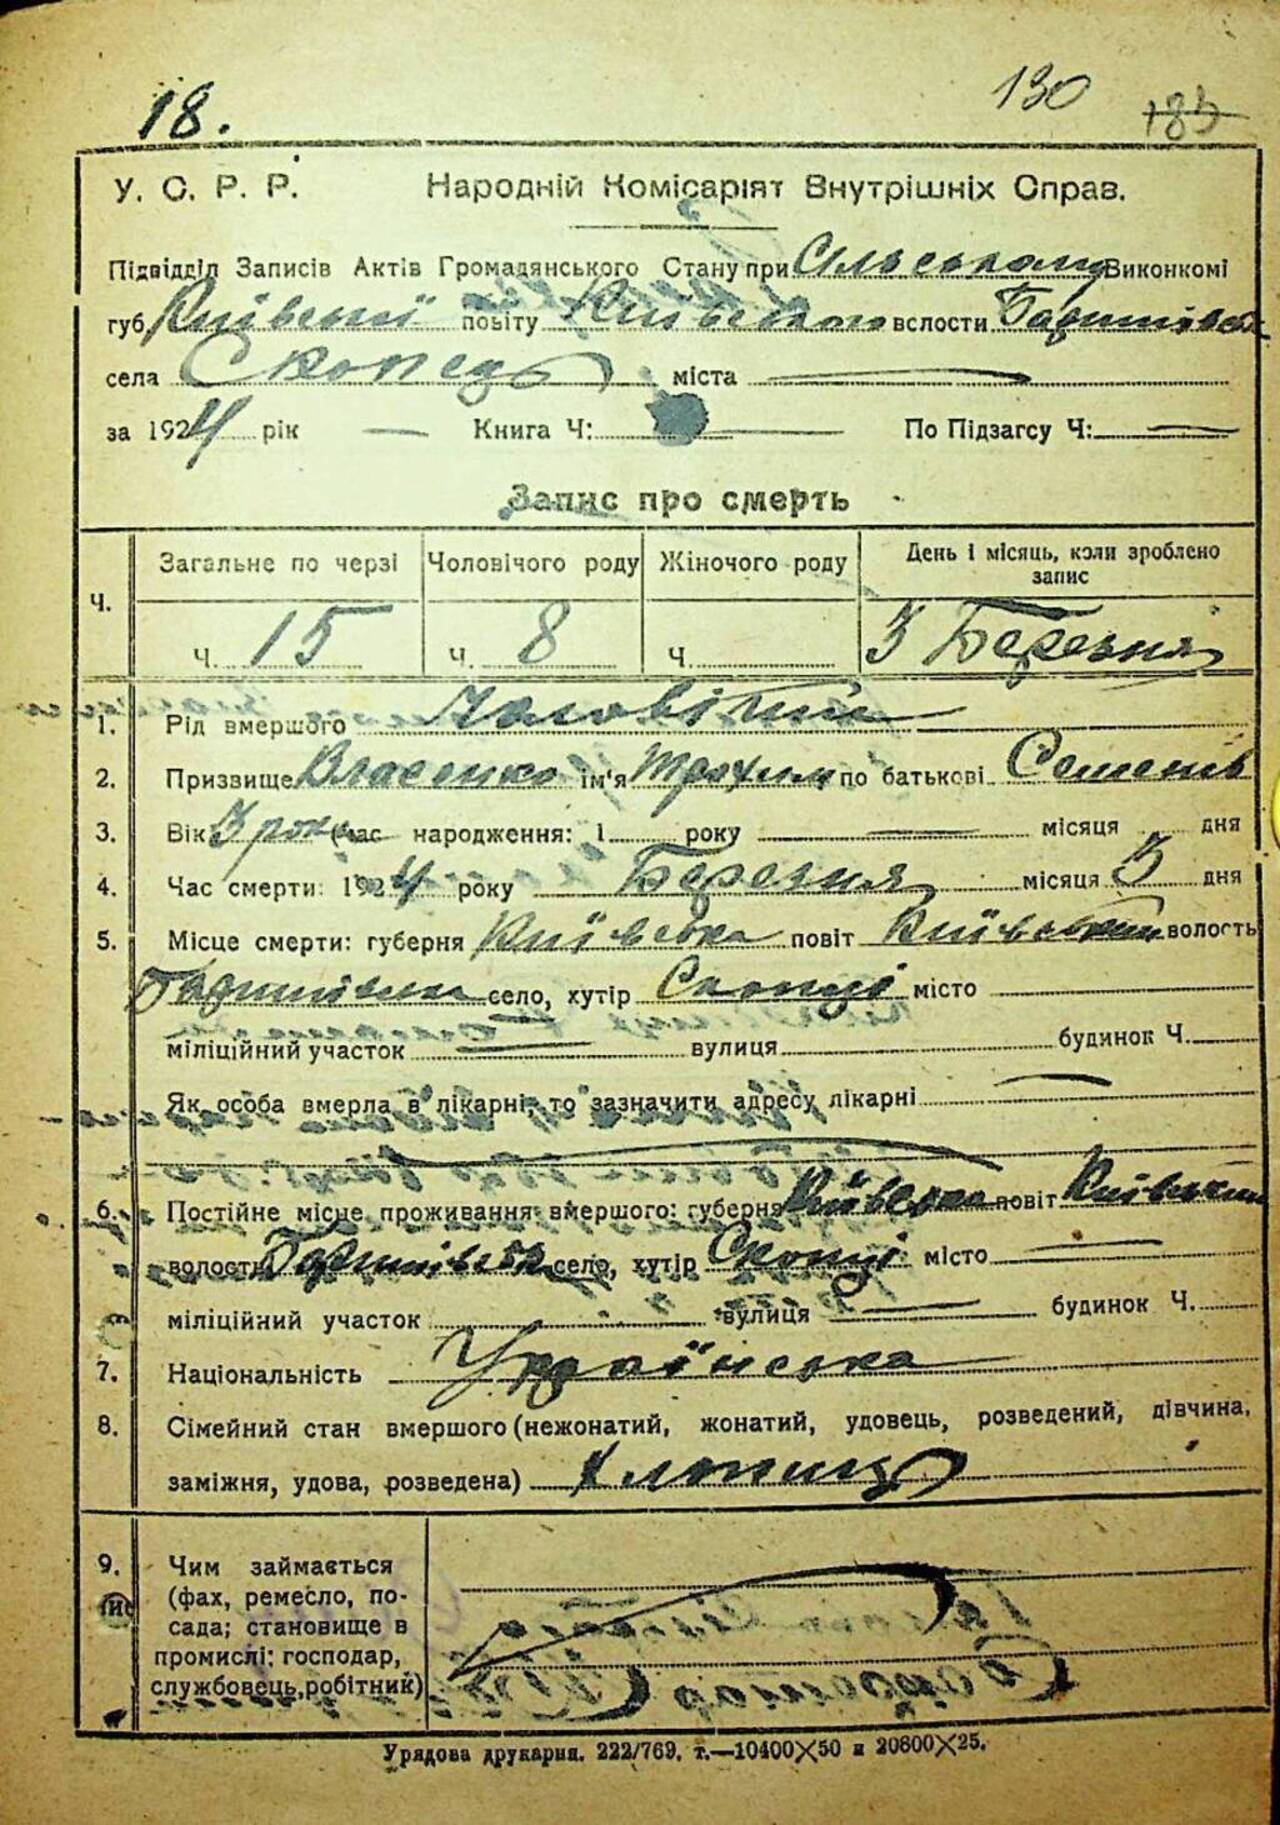 18.
130
185
У. С. Р. Р. Народній Комісаріят Внутрішніх Справ.
Підвідділ Записів Актів Громадянського Стану при Сільському Виконкомі
губ Київської повіту Київського волости Баришівськ
села Скопець міста
за 1924 рік — Книга Ч: По Підзагсу Ч: —
Запис про смерть
Ч. Загальне по черзі Чоловічого роду Жіночого роду День і місяць, коли зроблено запис
Ч. 15 Ч. 8 Ч. 3 Березня
1. Рід вмершого
2. Призвище Власенко ім'я Трохим по батькові Семенів
3. Вік 3 роки (час народження: 1 року — місяця дня
4. Час смерти: 1924 року Березня місяця 3 дня
5. Місце смерти: губерня Київська повіт Київський волость
Баришівська село, хутір Скопці місто
міліційний участок — вулиця будинок Ч.
Як особа вмерла в лікарні, то зазначити адресу лікарні —
6. Постійне місце проживання вмершого: губерня Київська повіт Київський
волость Баришівськ село, хутір Скопці місто —
міліційний участок вулиця — будинок Ч.
7. Національність Українська
8. Сімейний стан вмершого (нежонатий, жонатий, удовець, розведений, дівчина,
заміжня, удова, розведена) Хлопець
9. Чим займається
(фах, ремесло, по-
сада; становище в
промислі: господар,
службовець, робітник)
Урядова друкарня. 222/769. т.—10400X50 и 20800X25.